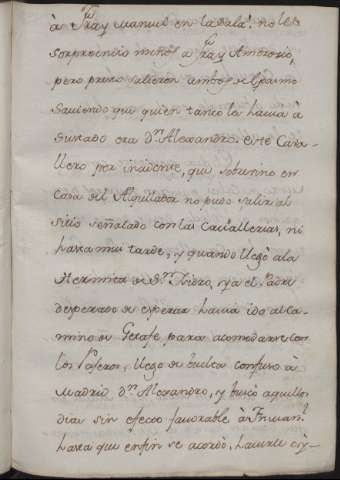 à Fray Manuel en la Sala. no les
sorprendio menos a Fray Ambrosio,
pero presto salieron ambos del pasmo
saviendo que quien tanto los havia à
sustado era Dn. Alexandro. este Cava-
llero por inadente, que sobrevino en
Casa del Alquilador no pudo salir al
sitio señalado con las Cavallerias, ni
hasta mui tarde, y quando llegò ala
Hermita de Sn. Isidro, ya el Padre
desperado de esperar havia ido al Ca-
mino de Getafe, para acomodarse con
los Paseros, llego de buelta confuso à
Madrid Dn. Alexandro, y buscò aquellos
dias sin efecto favorable à Fr. Juan
hasta que en fin se acordò, haverle oÿ-